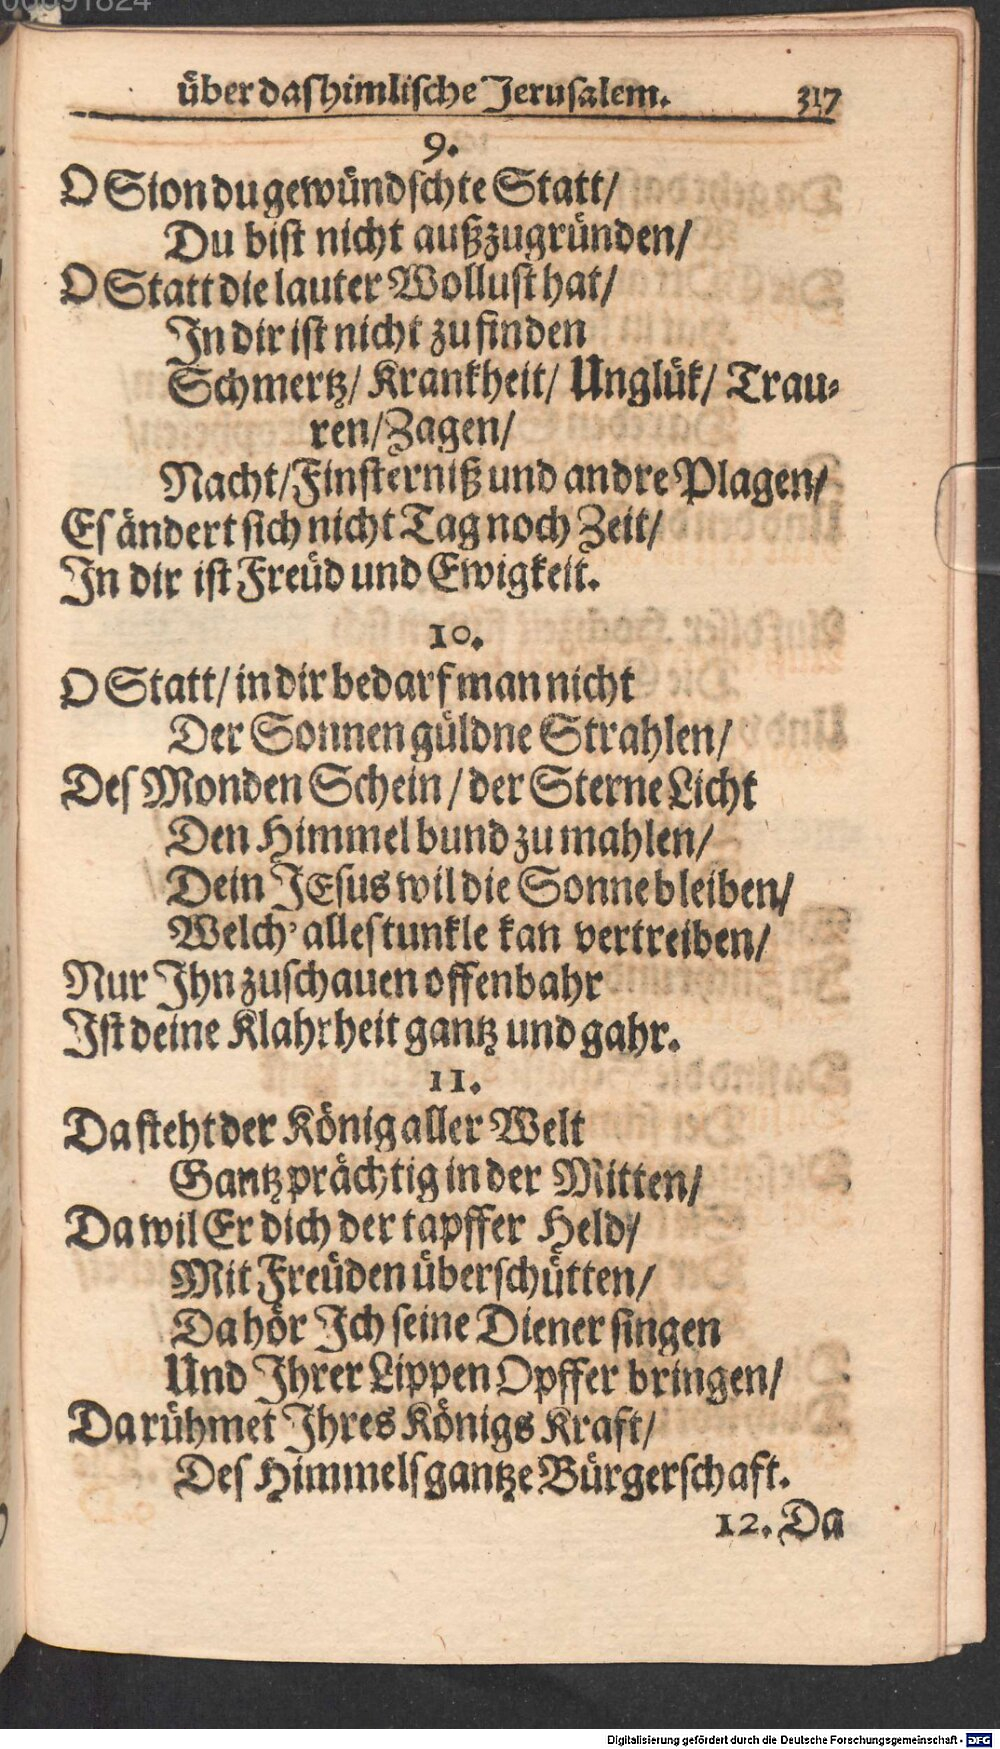 00091824
über das himlische Jerusalem. 317
9.
O Sion du gewündschte Statt/
Du bist nicht außzugründen/
O Statt die lauter Wollust hat/
In dir ist nicht zu finden
Schmertz/ Krankheit/ Unglük/ Trau-
ren/ Zagen/
Nacht/ Finsterniß und andre Plagen/
Es ändert sich nicht Tag noch Zeit/
In dir ist Freüd und Ewigkeit.
10.
O Statt/ in dir bedarf man nicht
Der Sonnen güldne Strahlen/
Des Monden Schein/ der Sterne Licht
Den Himmel bund zu mahlen/
Dein JEsus wil die Sonne bleiben/
Welch' alles tunkle kan vertreiben/
Nur Ihn zu schauen offenbahr
Ist deine Klahrheit gantz und gahr.
11.
Da steht der König aller Welt
Gantz prächtig in der Mitten/
Da wil Er dich der tapffer Held/
Mit Freüden überschütten/
Da hör Ich seine Diener singen
Und Ihrer Lippen Opffer bringen/
Da rühmet Ihres Königs Kraft/
Des Himmels gantze Bürgerschaft.
12. Da
Digitalisierung gefördert durch die Deutsche Forschungsgemeinschaft - DFG